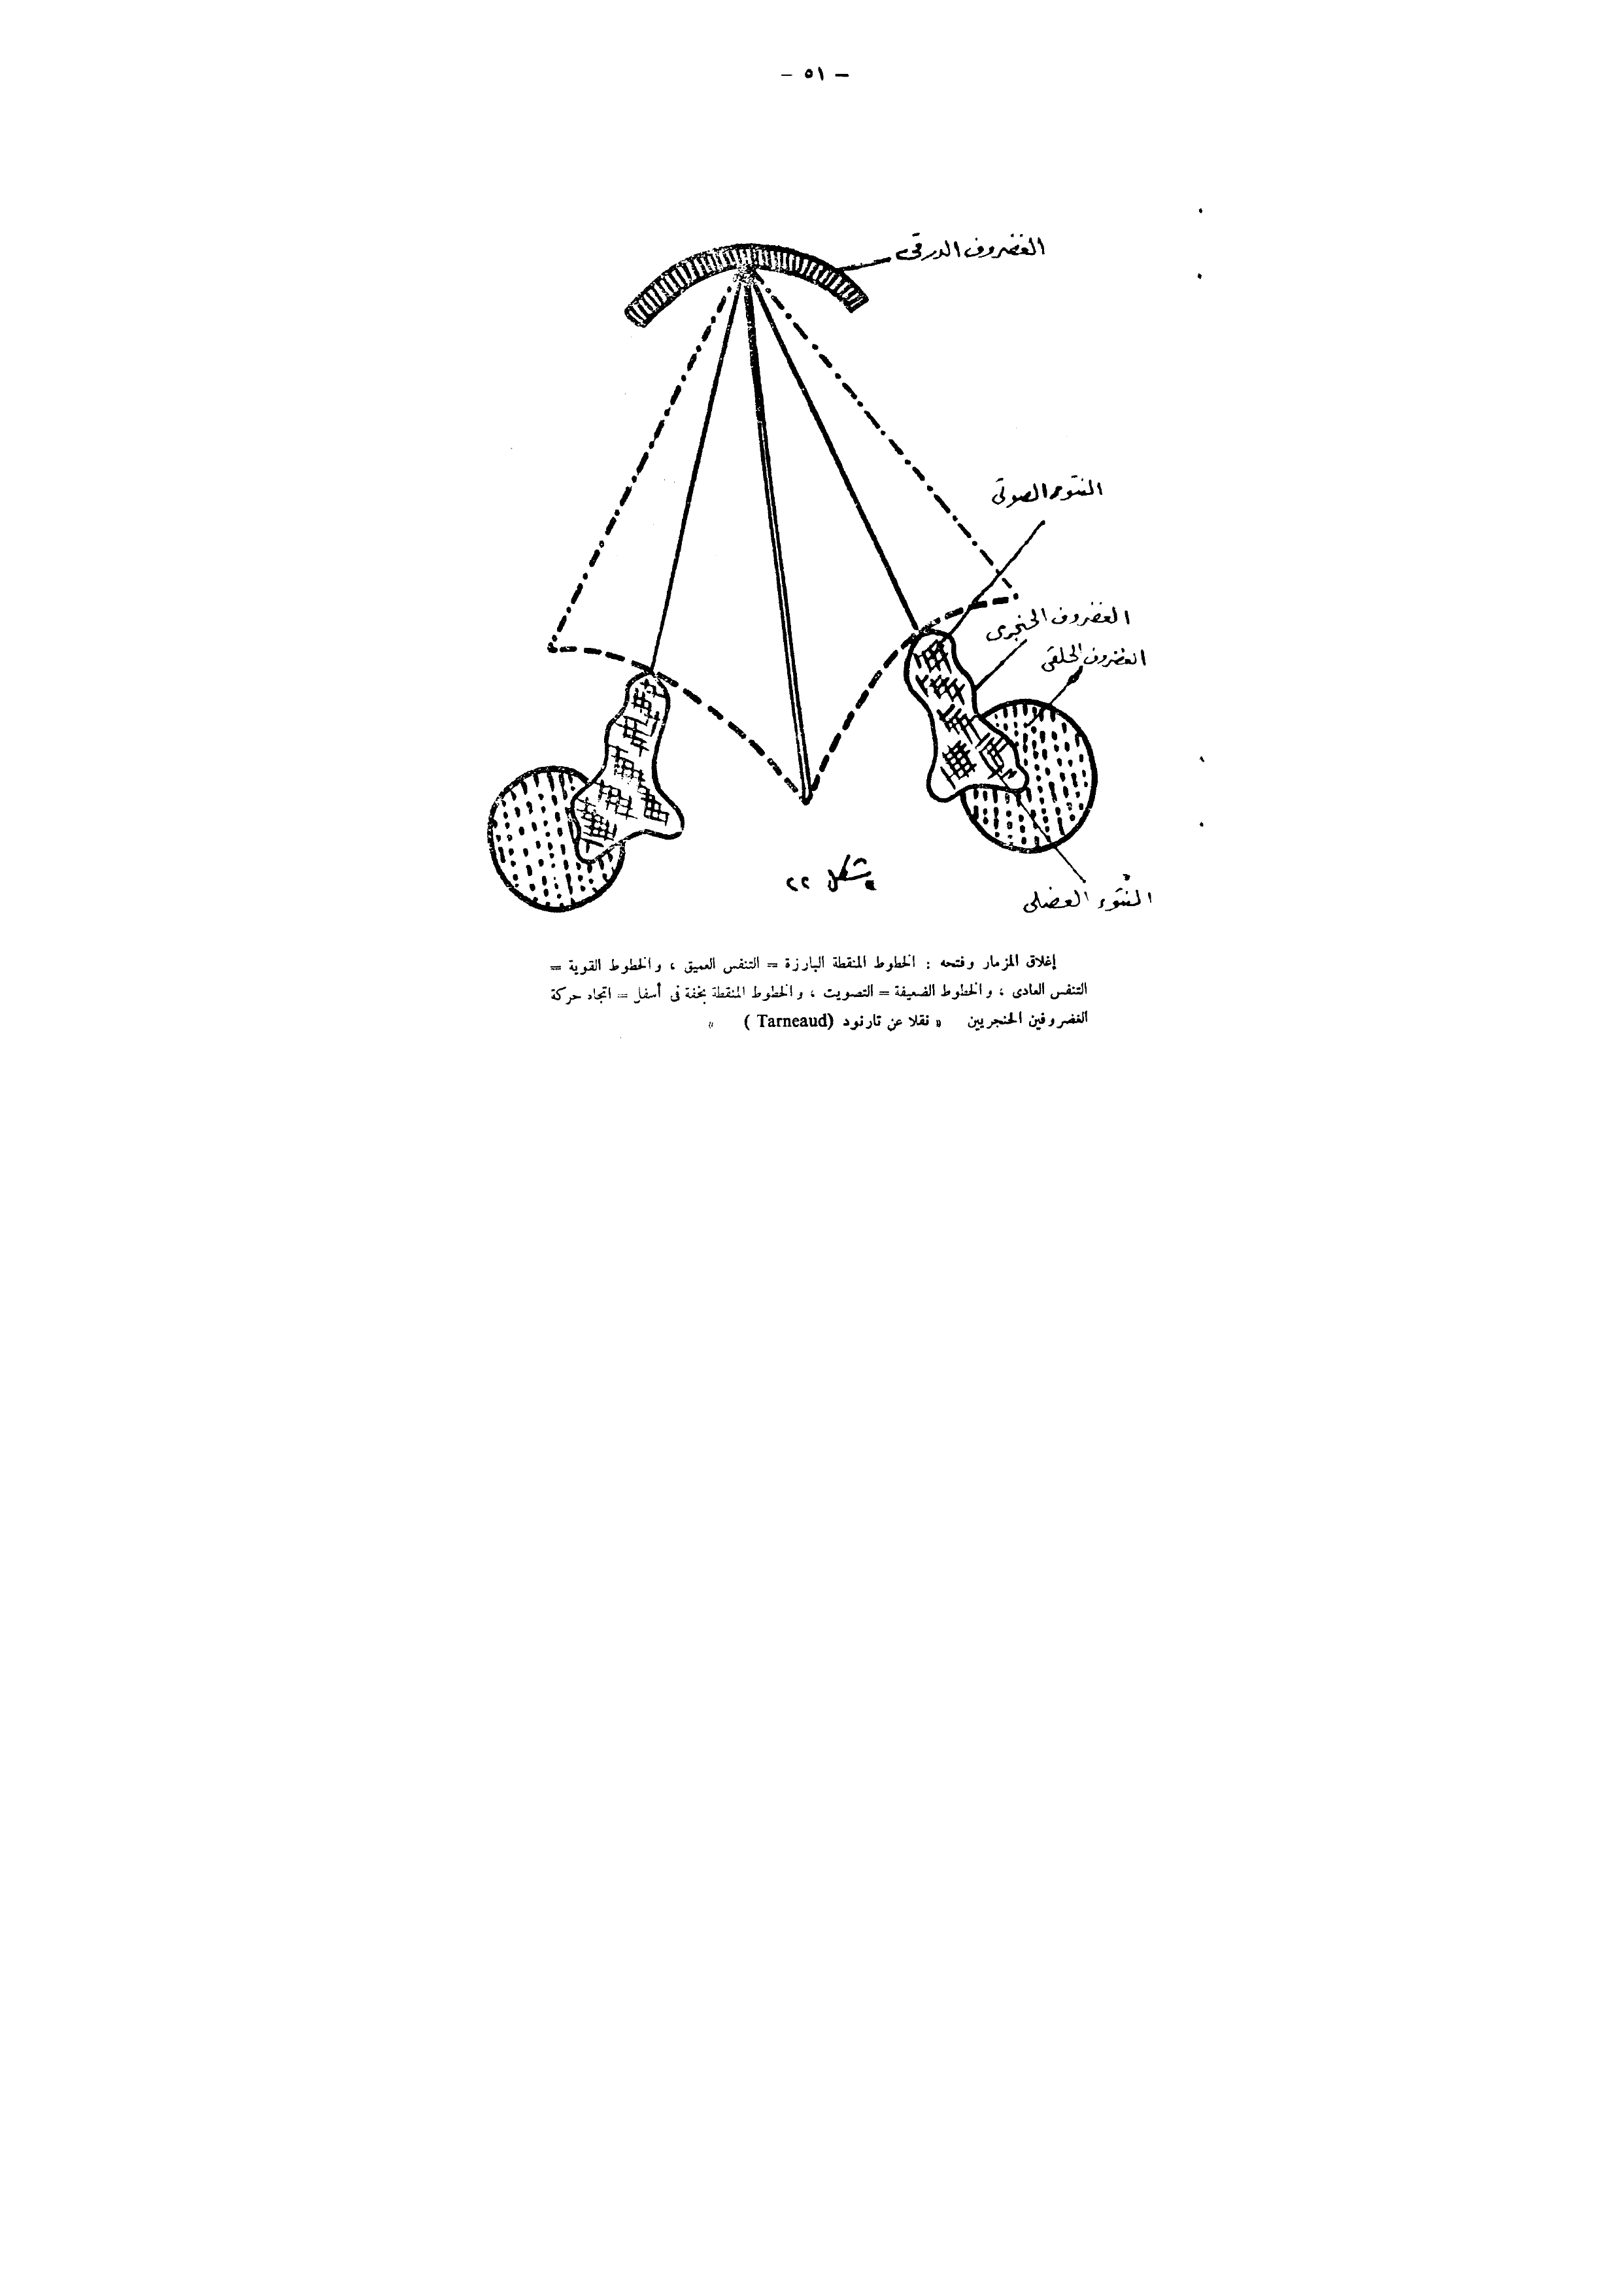 – ٥١ –
الغضروف الدرقى
النتوء الصوتى
الغضروف الحنجرى
الغضروف الحلقى
النتوء العضلى
شكل ٢٢
إغلاق المزمار وفتحه : الخطوط المنقطة البارزة = التنفس العميق ، والخطوط القوية =
التنفس العادى ، والخطوط الضعيفة = التصويت ، والخطوط المنقطة بخفة فى أسفل = اتجاه حركة
الغضروفين الحنجريين « نقلا عن تارنود (Tarneaud ) »